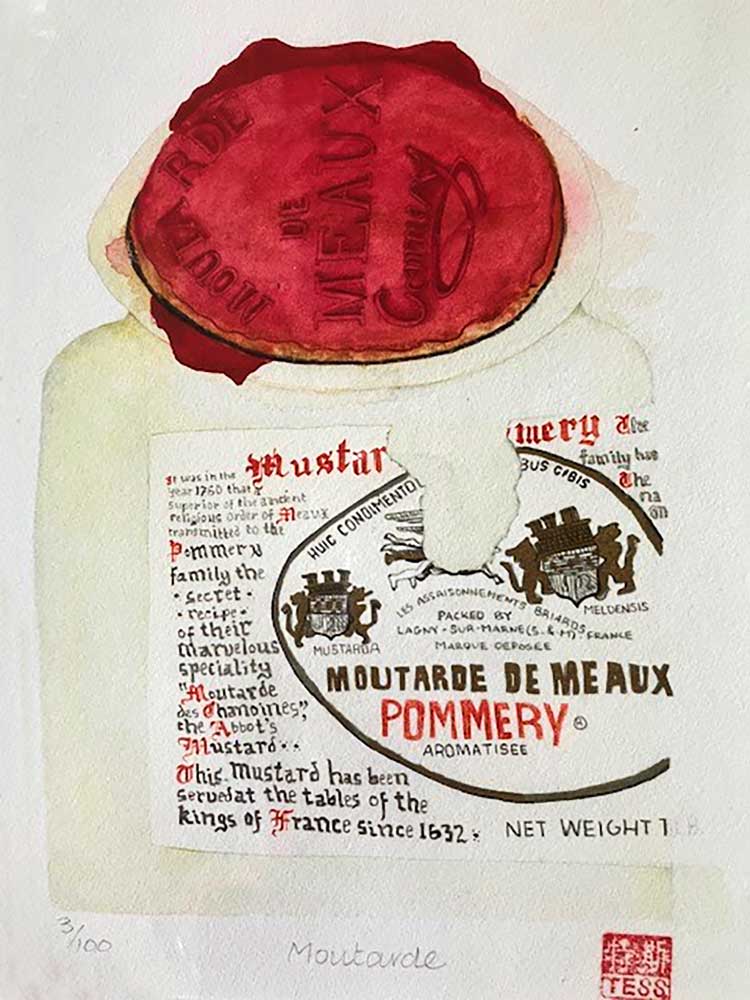 MOUTARDE
DE
MEAUX
Mustar
mery The
It was in the
year 1760 that a
superior of the ancient
religious order of Meaux
transmitted to the
Pommery
family the
· secret ·
· recipe ·
of their
marvelous
speciality
"Moutarde
des Chanoines",
the Abbot's
Mustard··
This Mustard has been
served at the tables of the
kings of France since 1632.
family has
The
HUIC CONDIMENTO
BUS CIBIS
MUSTARDA
MELDENSIS
LES ASSAISONNEMENTS BRIARDS
PACKED BY
LAGNY-SUR-MARNE (S.&M) FRANCE
MARQUE DEPOSEE
MOUTARDE DE MEAUX
POMMERY ®
AROMATISEE
NET WEIGHT 1
3/100
Moutarde
TESS